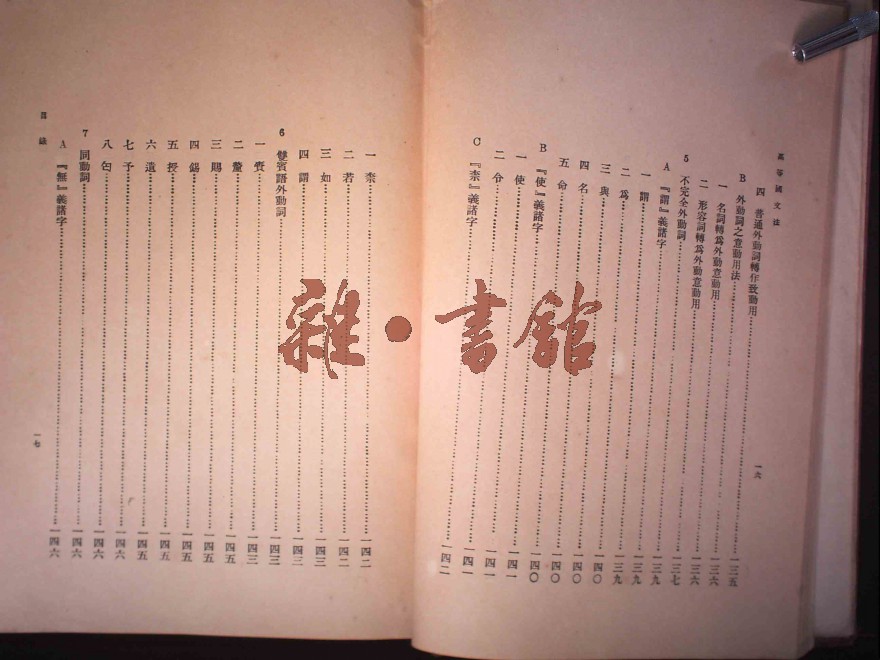 高等國文法
四 普通外動詞轉作致動用……一三五
B 外動詞之意動用法……一三六
一 名詞轉爲外動意動用……一三六
二 形容詞轉爲外動意動用……一三七
5 不完全外動詞……一三九
A 『謂』義諸字……一三九
一 謂……一三九
二 爲……一四〇
三 與……一四〇
四 名……一四〇
五 命……一四〇
B 『使』義諸字……一四一
一 使……一四一
二 令……一四一
C 『柰』義諸字……一四二
一六
一 柰……一四二
二 若……一四二
三 如……一四三
四 謂……一四三
6 雙賓語外動詞……一四三
一 賚……一四三
二 釐……一四五
三 賜……一四五
四 錫……一四五
五 授……一四五
六 遺……一四五
七 予……一四六
八 匄……一四六
7 同動詞……一四六
A 『無』義諸字……一四六
目錄
一七
雜·書館